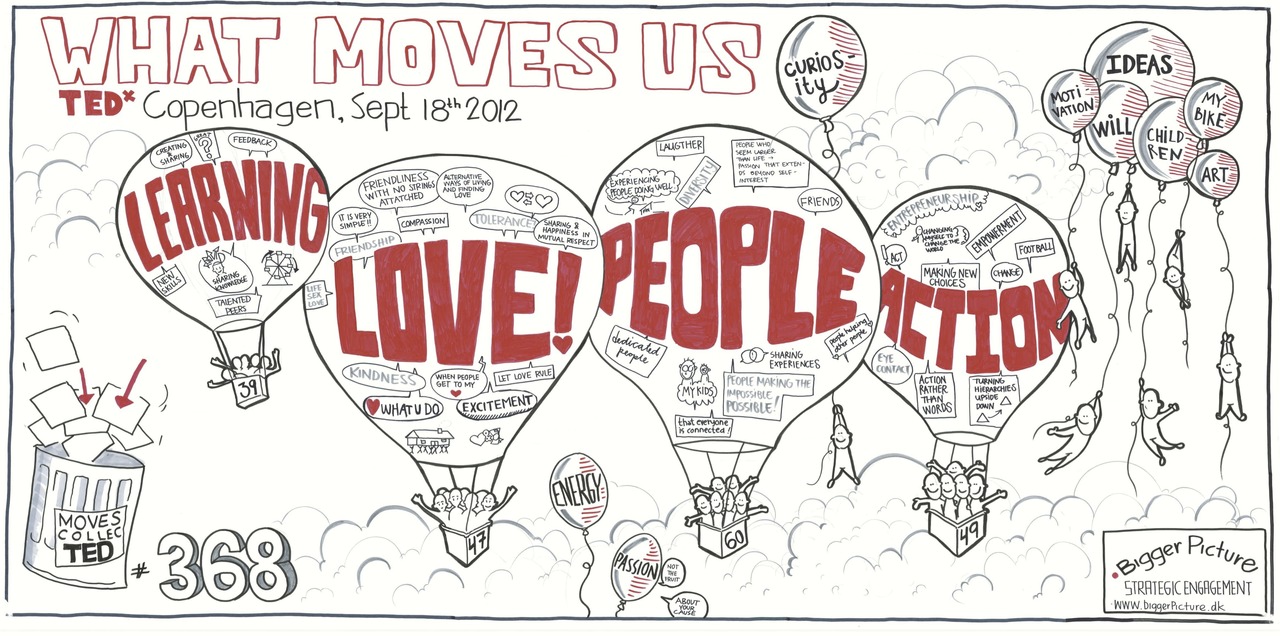 WHAT MOVES US
TEDx Copenhagen, Sept 18th 2012
CURIOS-
ity
IDEAS
MOTI
VATION
WILL
CHILD
REN
MY
BIKE
ART
CREATING
&
SHARING
GREAT
?
FEEDBACK
LEARNING
NEW
SKILLS
SHARING
KNOWLEDGE
TALENTED
PEERS
39
FRIENDLINESS
WITH NO STRINGS
ATTATCHED
ALTERNATIVE
WAYS OF LIVING
AND FINDING
LOVE
IT IS VERY
SIMPLE!!
COMPASSION
TOLERANCE
SHARING &
HAPPINESS IN
MUTUAL RESPECT
FRIENDSHIP
LOVE!
LIFE
SEX
LOVE
KINDNESS
WHEN PEOPLE
GET TO MY
LET LOVE RULE
WHAT U DO
EXCITEMENT
47
LAUGTHER
EXPERIENCING
PEOPLE DOING WELL
DIVERSITY
PEOPLE WHO
SEEM LARGER
THAN LIFE →
PASSION THAT EXTEN-
DS BEYOND SELF-
INTEREST
FRIENDS
PEOPLE
dedicated
people
MY KIDS
SHARING
EXPERIENCES
people helping
other people
PEOPLE MAKING THE
IMPOSSIBLE
POSSIBLE!
that everyone
is connected!
60
ENTREPRENEURSHIP
CHANGING
MYSELF TO
CHANGE THE
WORLD
EMPOWERMENT
FOOTBALL
ACT
MAKING NEW
CHOICES
CHANGE
ACTION
EYE
CONTACT
ACTION
RATHER
THAN
WORDS
TURNING
HIERARCHIES
UPSIDE
DOWN
49
ENERGY
PASSION
NOT
THE
FRUIT
ABOUT
YOUR
CAUSE
MOVES
COLLEC
TED
# 368
Bigger Picture
STRATEGIC ENGAGEMENT
www.biggerPicture.dk